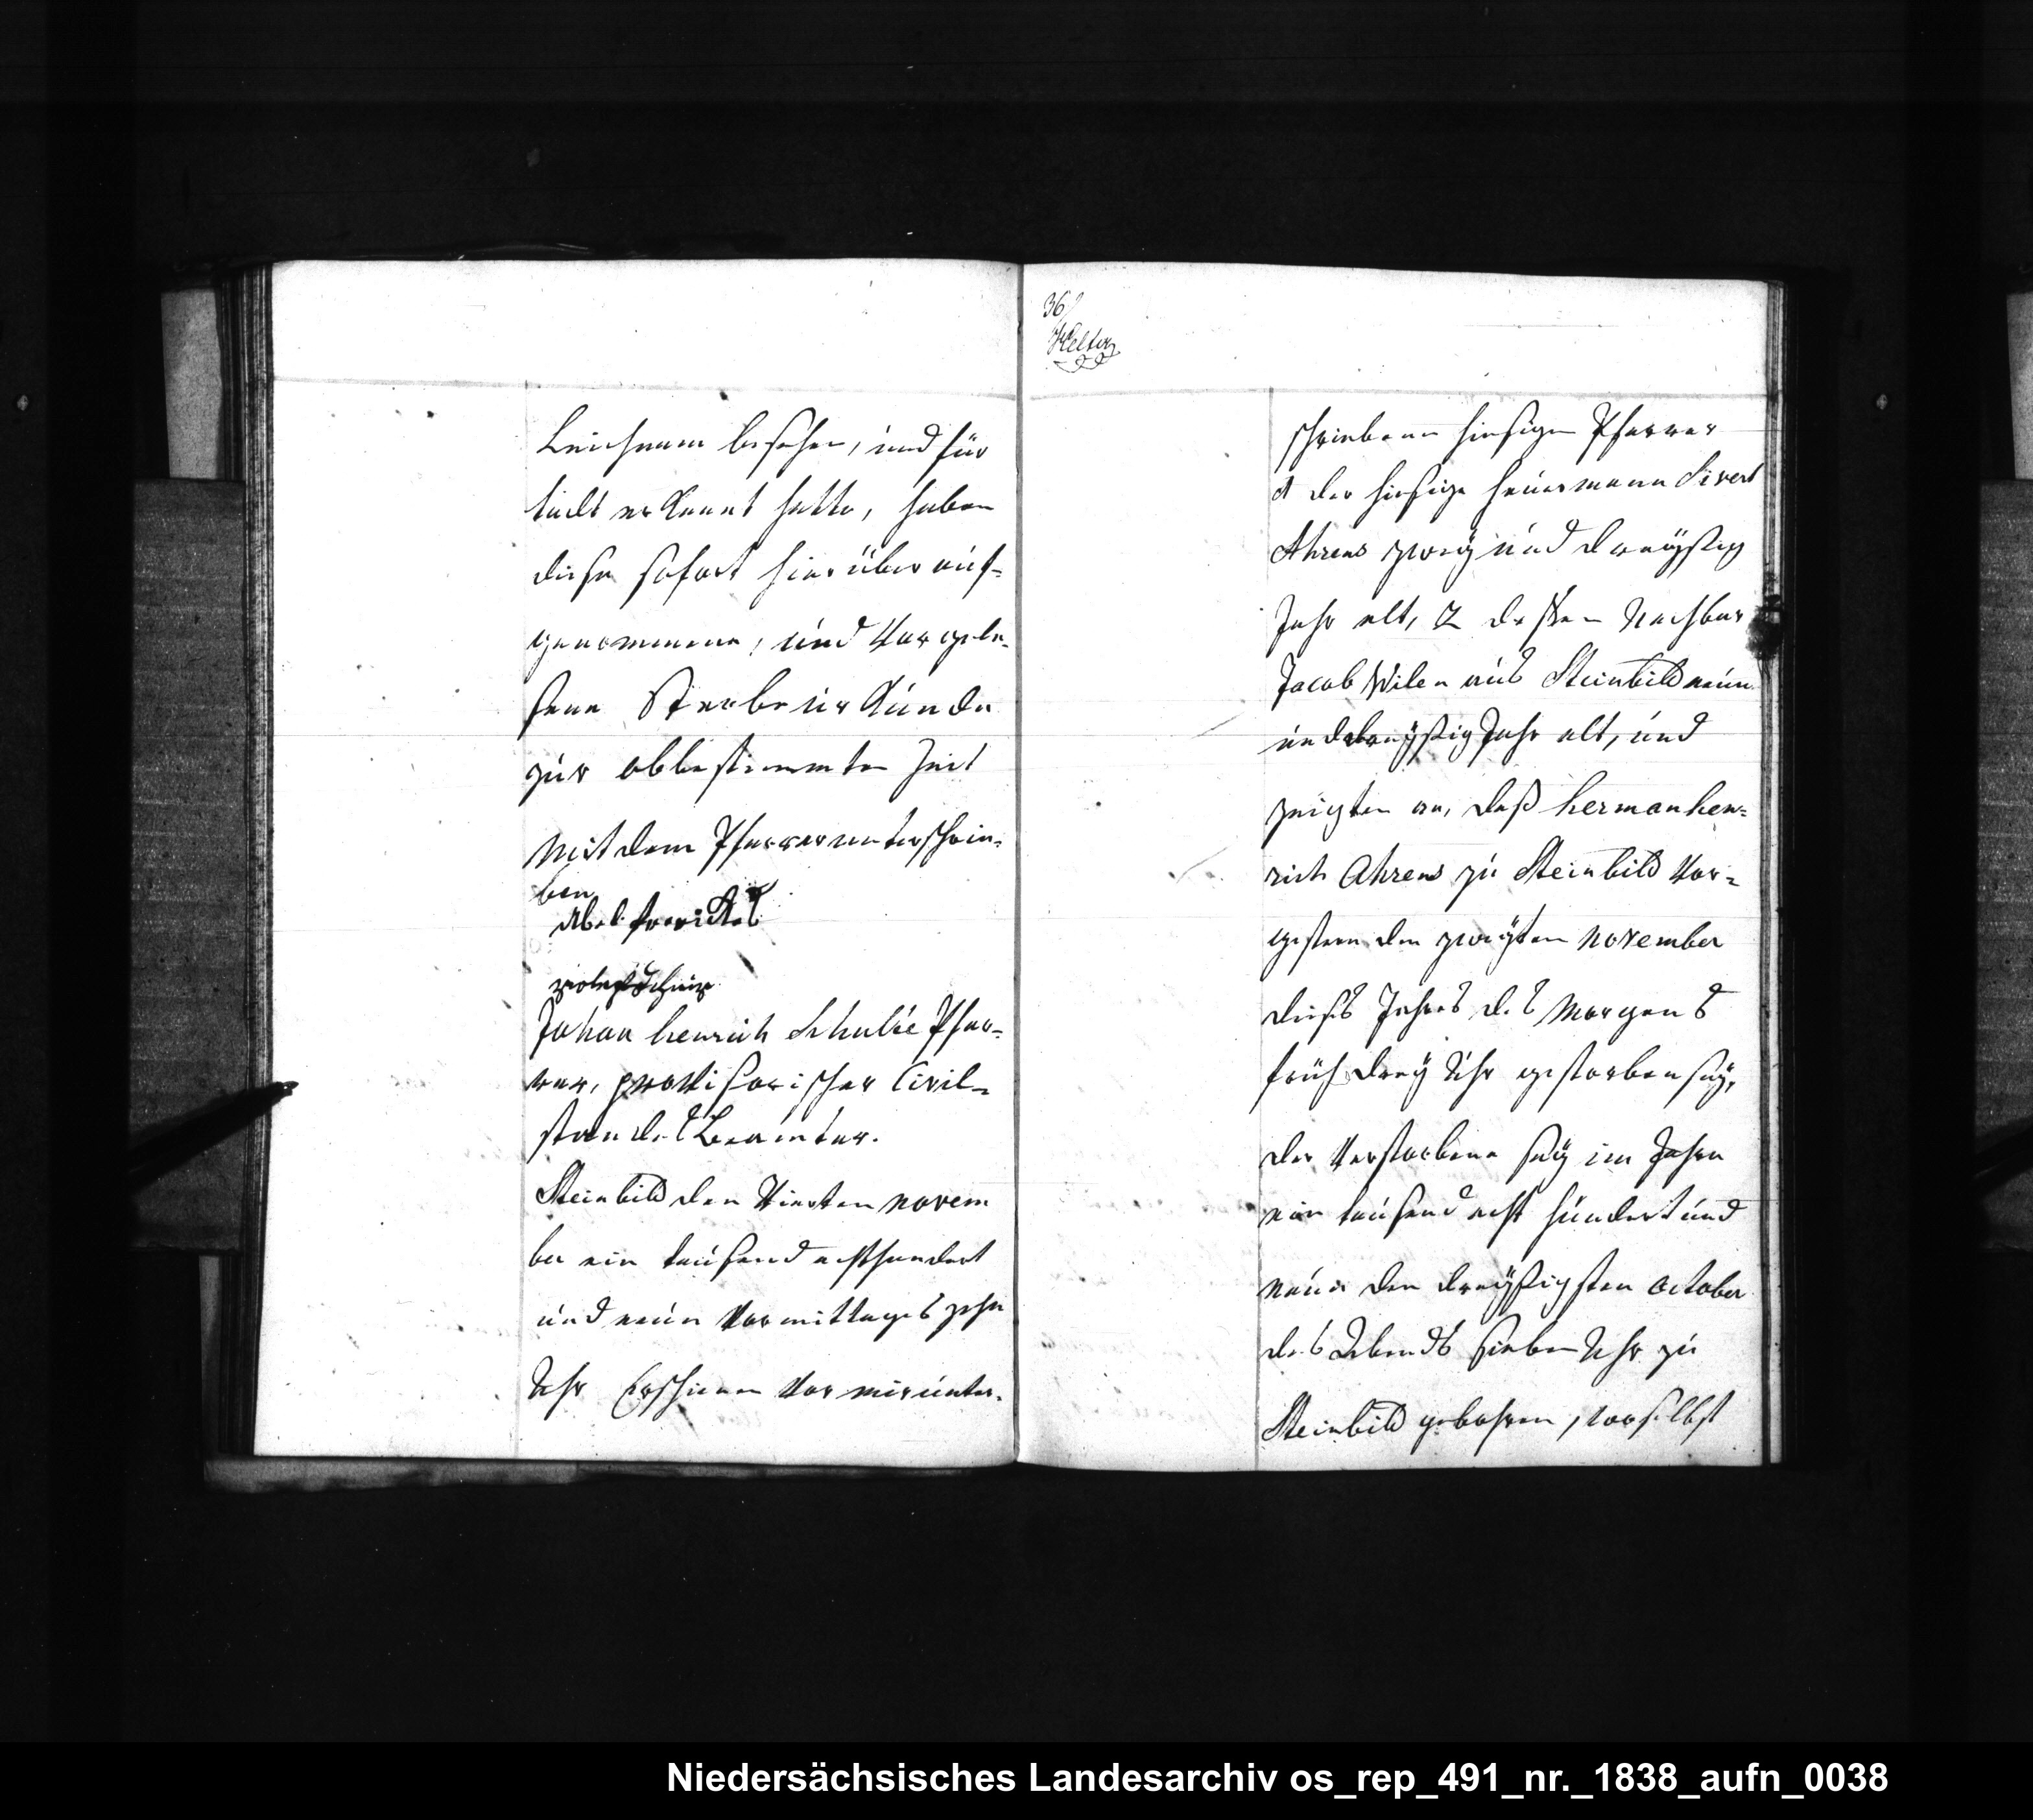 Leichnam besehen, und für
todt erkannt hatte, haben
diese sofort hierüber auf-
genommene, und vorgele-
sene Sterbeurkunde
zur obbestimmten Zeit
mit dem Pfarrer unterschrie-
ben
Abel
Johan henrich Schulte Pfar-
rer, provisorischer Civil-
standes Beamter.
Steinbild den vierten novem
ber ein tausend achthundert
und neun vormittages zehn
Uhr Erschienen vor mir unter-
36
schriebenen hiesigen Pfarrer
1 der hiesige heuermann Sivert
Ahrens zwey und dreyßig
Jahr alt, 2 dessen Nachbar
Jacob Wilen aus Steinbild neun
und dreyßig Jahr alt, und
zeigten an, daß herman hen-
rich Ahrens zu Steinbild vor-
gestern den zweyten november
dieses Jahres des Morgens
früh drey Uhr gestorben sey,
der verstorbene sey im Jahre
ein tausend acht hundert und
neun den dreyßigsten october
des Abends sieben Uhr zu
Steinbild gebohren, vorselbst
Niedersächsisches Landesarchiv os_rep_491_nr._1838_aufn_0038